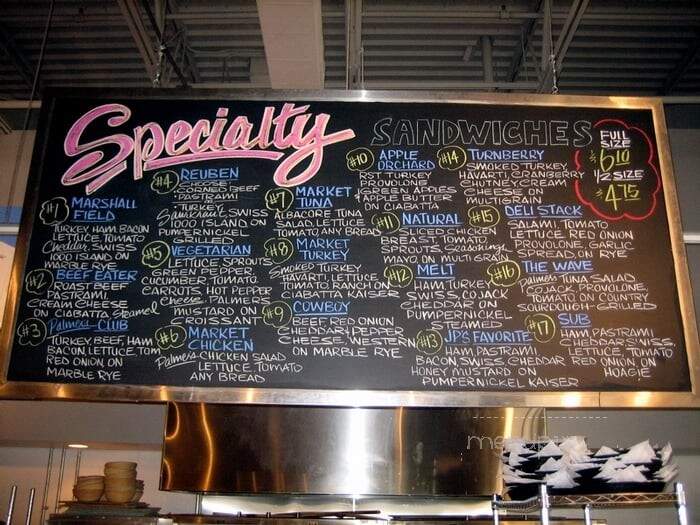 Specialty
SANDWICHES
FULL
SIZE
$6.10
1/2 SIZE
$4.75
#1 MARSHALL
FIELD
TURKEY, HAM, BACON
LETTUCE, TOMATO
Cheddar, SWISS
1000 ISLAND ON
MARBLE RYE
#2 BEEFEATER
ROAST BEEF
PASTRAMI,
CREAM CHEESE
ON CIABATTA Steamed
#3 Palmers CLUB
TURKEY, BEEF, HAM
BACON, LETTUCE, TOM
RED ONION, ON
MARBLE RYE
#4 REUBEN
CHOOSE
CORNED BEEF
PASTRAMI
TURKEY,
Sauerkraut, SWISS
1000 ISLAND ON
PUMPERNICKEL
GRILLED
#5 VEGETARIAN
LETTUCE, SPROUTS
GREEN PEPPER,
CUCUMBER, TOMATO,
CARROTS, HOT PEPPER
Cheese, PALMER'S
MUSTARD ON
CROISSANT
#6 MARKET
CHICKEN
Palmers CHICKEN SALAD
LETTUCE, TOMATO
ANY BREAD
#7 MARKET
TUNA
ALBACORE TUNA
SALAD, LETTUCE
TOMATO, ANY BREAD
#8 MARKET
TURKEY
Smoked TURKEY
HAVARTI, LETTUCE
TOMATO, RANCH ON
CIABATTA KAISER
#9 COWBOY
BEEF, RED ONION
CHEDDAR, PEPPER
CHEESE, WESTERN
ON MARBLE RYE
#10 APPLE
ORCHARD
RST TURKEY
PROVOLONE
GREEN APPLES
APPLE BUTTER
ON CIABATTA
#11 NATURAL
SLICED CHICKEN
BREAST, TOMATO
SPROUTS,
MAYO, ON MULTI GRAIN
#12 MELT
HAM, TURKEY
SWISS, CO JACK
CHEDDAR ON
PUMPERNICKEL
STEAMED
#13 JP'S FAVORITE
HAM, PASTRAMI
BACON, SWISS, CHEDDAR
HONEY MUSTARD ON
PUMPERNICKEL KAISER
#14 TURNBERRY
SMOKED TURKEY,
HAVARTI, CRANBERRY
CHUTNEY, CREAM
CHEESE ON
MULTIGRAIN
#15 DELI STACK
SALAMI, TOMATO
LETTUCE, RED ONION
PROVOLONE, GARLIC
SPREAD, ON RYE
#16 THE WAVE
Palmers TUNA SALAD
CO JACK, PROVOLONE,
TOMATO ON COUNTRY
SOURDOUGH - GRILLED
#17 SUB
HAM, PASTRAMI
CHEDDAR, SWISS,
LETTUCE, TOMATO
RED ONION, ON
HOAGIE
menupix